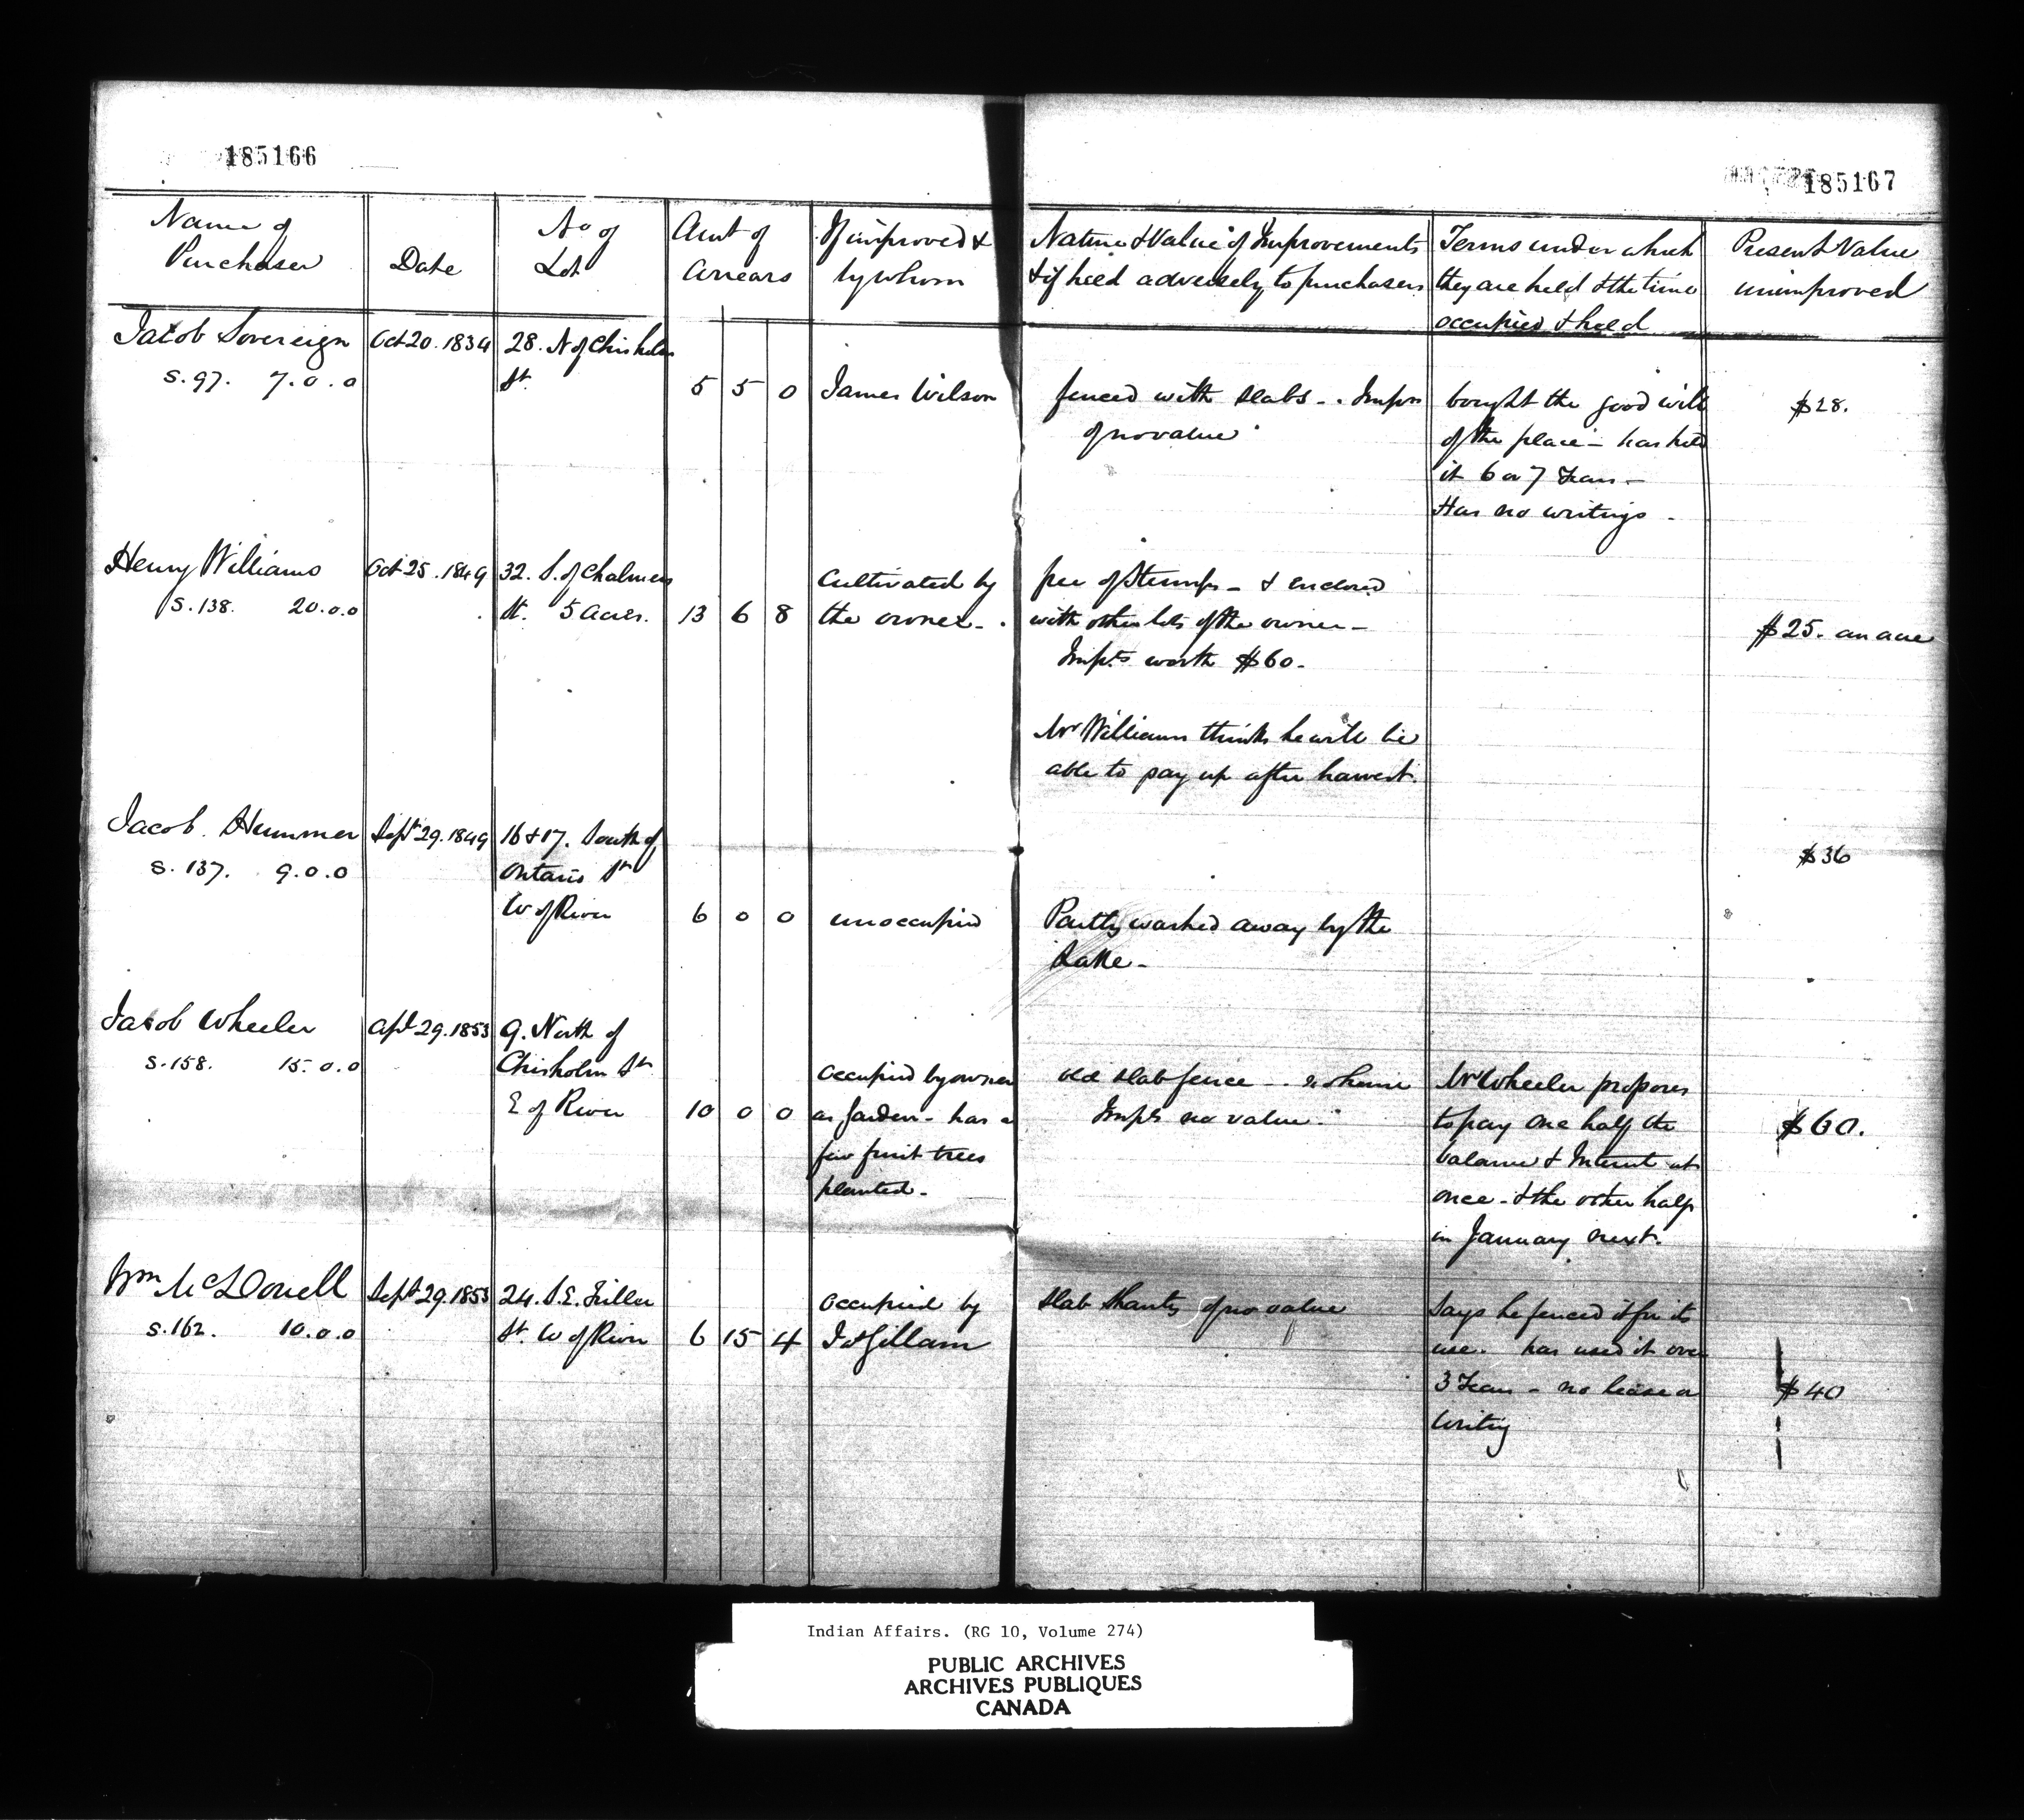 185166
185167
Name of Purchaser
Date
No of Lot
Amt of Arrears
If improved & by whom
Nature & Value of Improvements & if held adversely to purchasers
Terms under which they are held & the time occupied & held
Present Value unimproved
Jacob Sovereign Oct 20. 1834 28. N of Chisholm
S. 97. 7.0.0 St. 5 5 0 James Wilson
fenced with slabs - . Impts
of no value
bought the good will
of the place - has held
it 6 or 7 Years -
Has no writings -
$28.
Henry Williams Oct 25. 1849 32. S. of Chalmers
S. 138. 20.0.0 St. 5 Acres. 13 6 8
Cultivated by
the owner - .
free of Stumps - & enclosed
with other lots of the owner -
Impts worth $60.
$25. an acre
Mr Williams thinks he will be
able to pay up after harvest.
Jacob Hummer Sept 29. 1849 16 & 17. South of
S. 137. 9.0.0 Ontario St
W of River 6 0 0 unoccupied
Partly washed away by the
Lake -
$36
Jacob Wheeler Apl 29. 1853 9. North of
S. 158. 15.0.0 Chisholm St
E of River 10 0 0
Occupied by owner
as Garden - has a
few fruit trees
planted -
old slab fence - .
Impts no value.
Mr Wheeler proposes
to pay one half the
balance & Interest at
once - & the other half
in January next.
$60.
Wm McDonell Sept 29. 1853 24. S.E.
S. 162. 10.0.0 St. W of River 6 15 4
Occupied by
Gillam
slab shanty of no value
Says he fenced it for its
use. has used it over
3 Years - no lease or
writing
$40
Indian Affairs. (RG 10, Volume 274)
PUBLIC ARCHIVES
ARCHIVES PUBLIQUES
CANADA